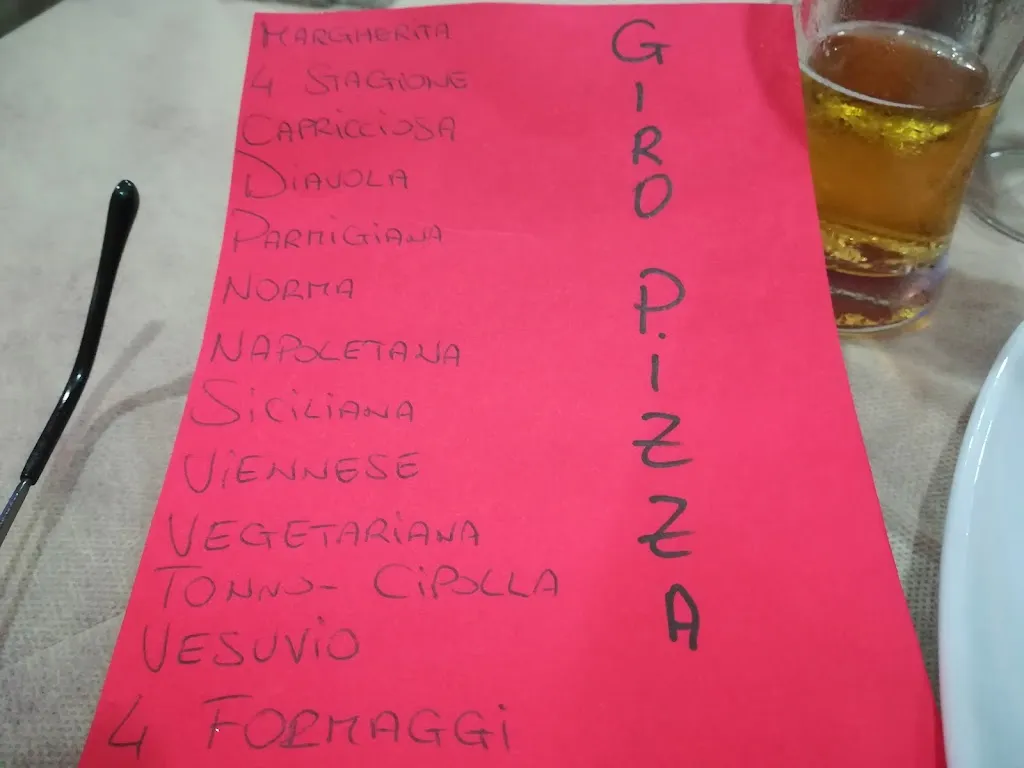 MARGHERITA
4 STAGIONE
CAPRICCIOSA
DIAVOLA
PARMIGIANA
NORMA
NAPOLETANA
SICILIANA
VIENNESE
VEGETARIANA
TONNO- CIPOLLA
VESUVIO
4 FORMAGGI
GIRO PIZZA